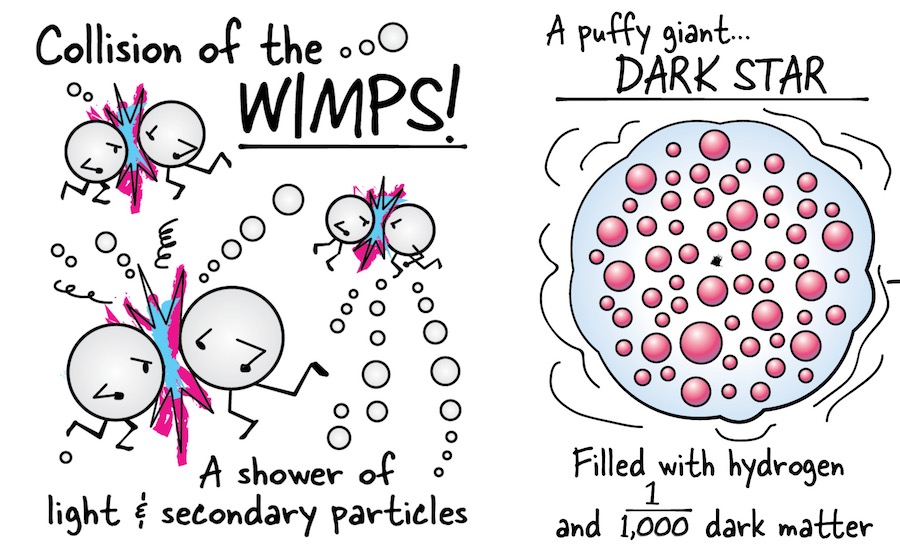 Collision of the
WIMPS!
A shower of
light & secondary particles
A puffy giant...
DARK STAR
Filled with hydrogen
and 1/1,000 dark matter